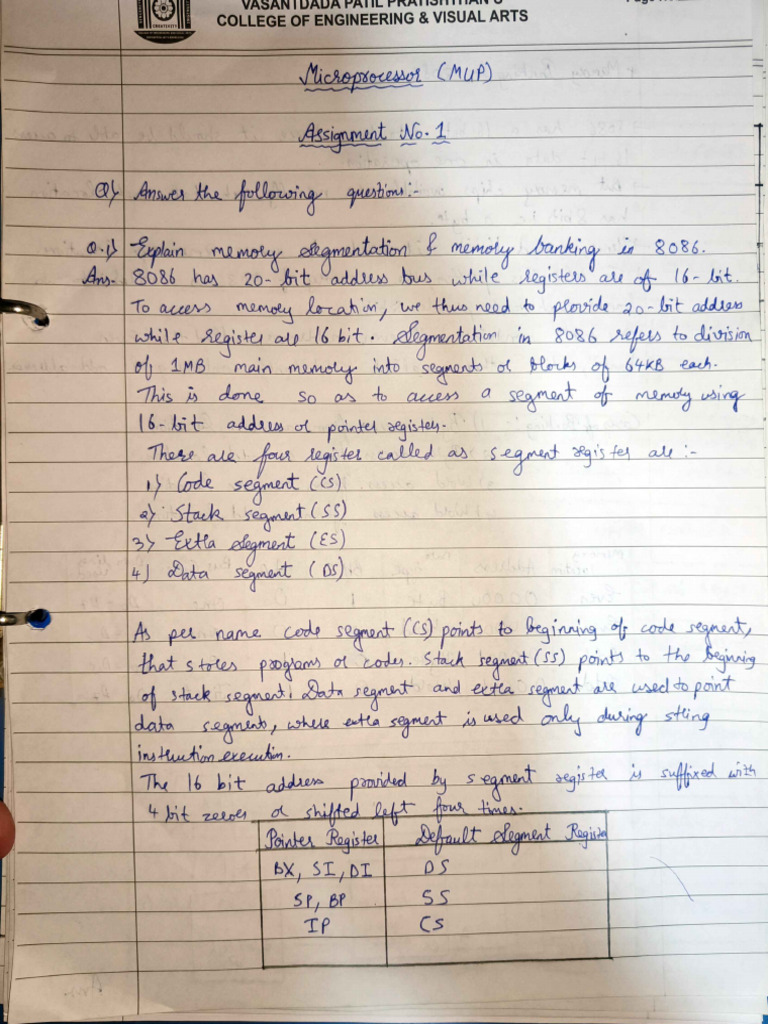 VASANTDADA PATIL PRATISHTHAN'S
COLLEGE OF ENGINEERING & VISUAL ARTS
Microprocessor (MUP)
Assignment No. 1
Q) Answer the following questions:-
Q.1) Explain memory segmentation & memory banking in 8086.
Ans. 8086 has 20-bit address bus while registers are of 16-bit.
To access memory location, we thus need to provide 20-bit address
while register are 16 bit. Segmentation in 8086 refers to division
of 1MB main memory into segments or blocks of 64KB each.
This is done so as to access a segment of memory using
16-bit address or pointer registers.
There are four register called as segment register are :-
1) Code segment (CS)
2) Stack segment (SS)
3) Extra segment (ES)
4) Data segment (DS)
As per name code segment (CS) points to beginning of code segment,
that stores programs or codes. Stack segment (SS) points to the beginning
of stack segment. Data segment and extra segment are used to point
data segments, where extra segment is used only during string
instruction execution.
The 16 bit address provided by segment register is suffixed with
4 bit zeroes or shifted left four times.
Pointer Register Default Segment Register
BX, SI, DI DS
SP, BP SS
IP CS
Ans.